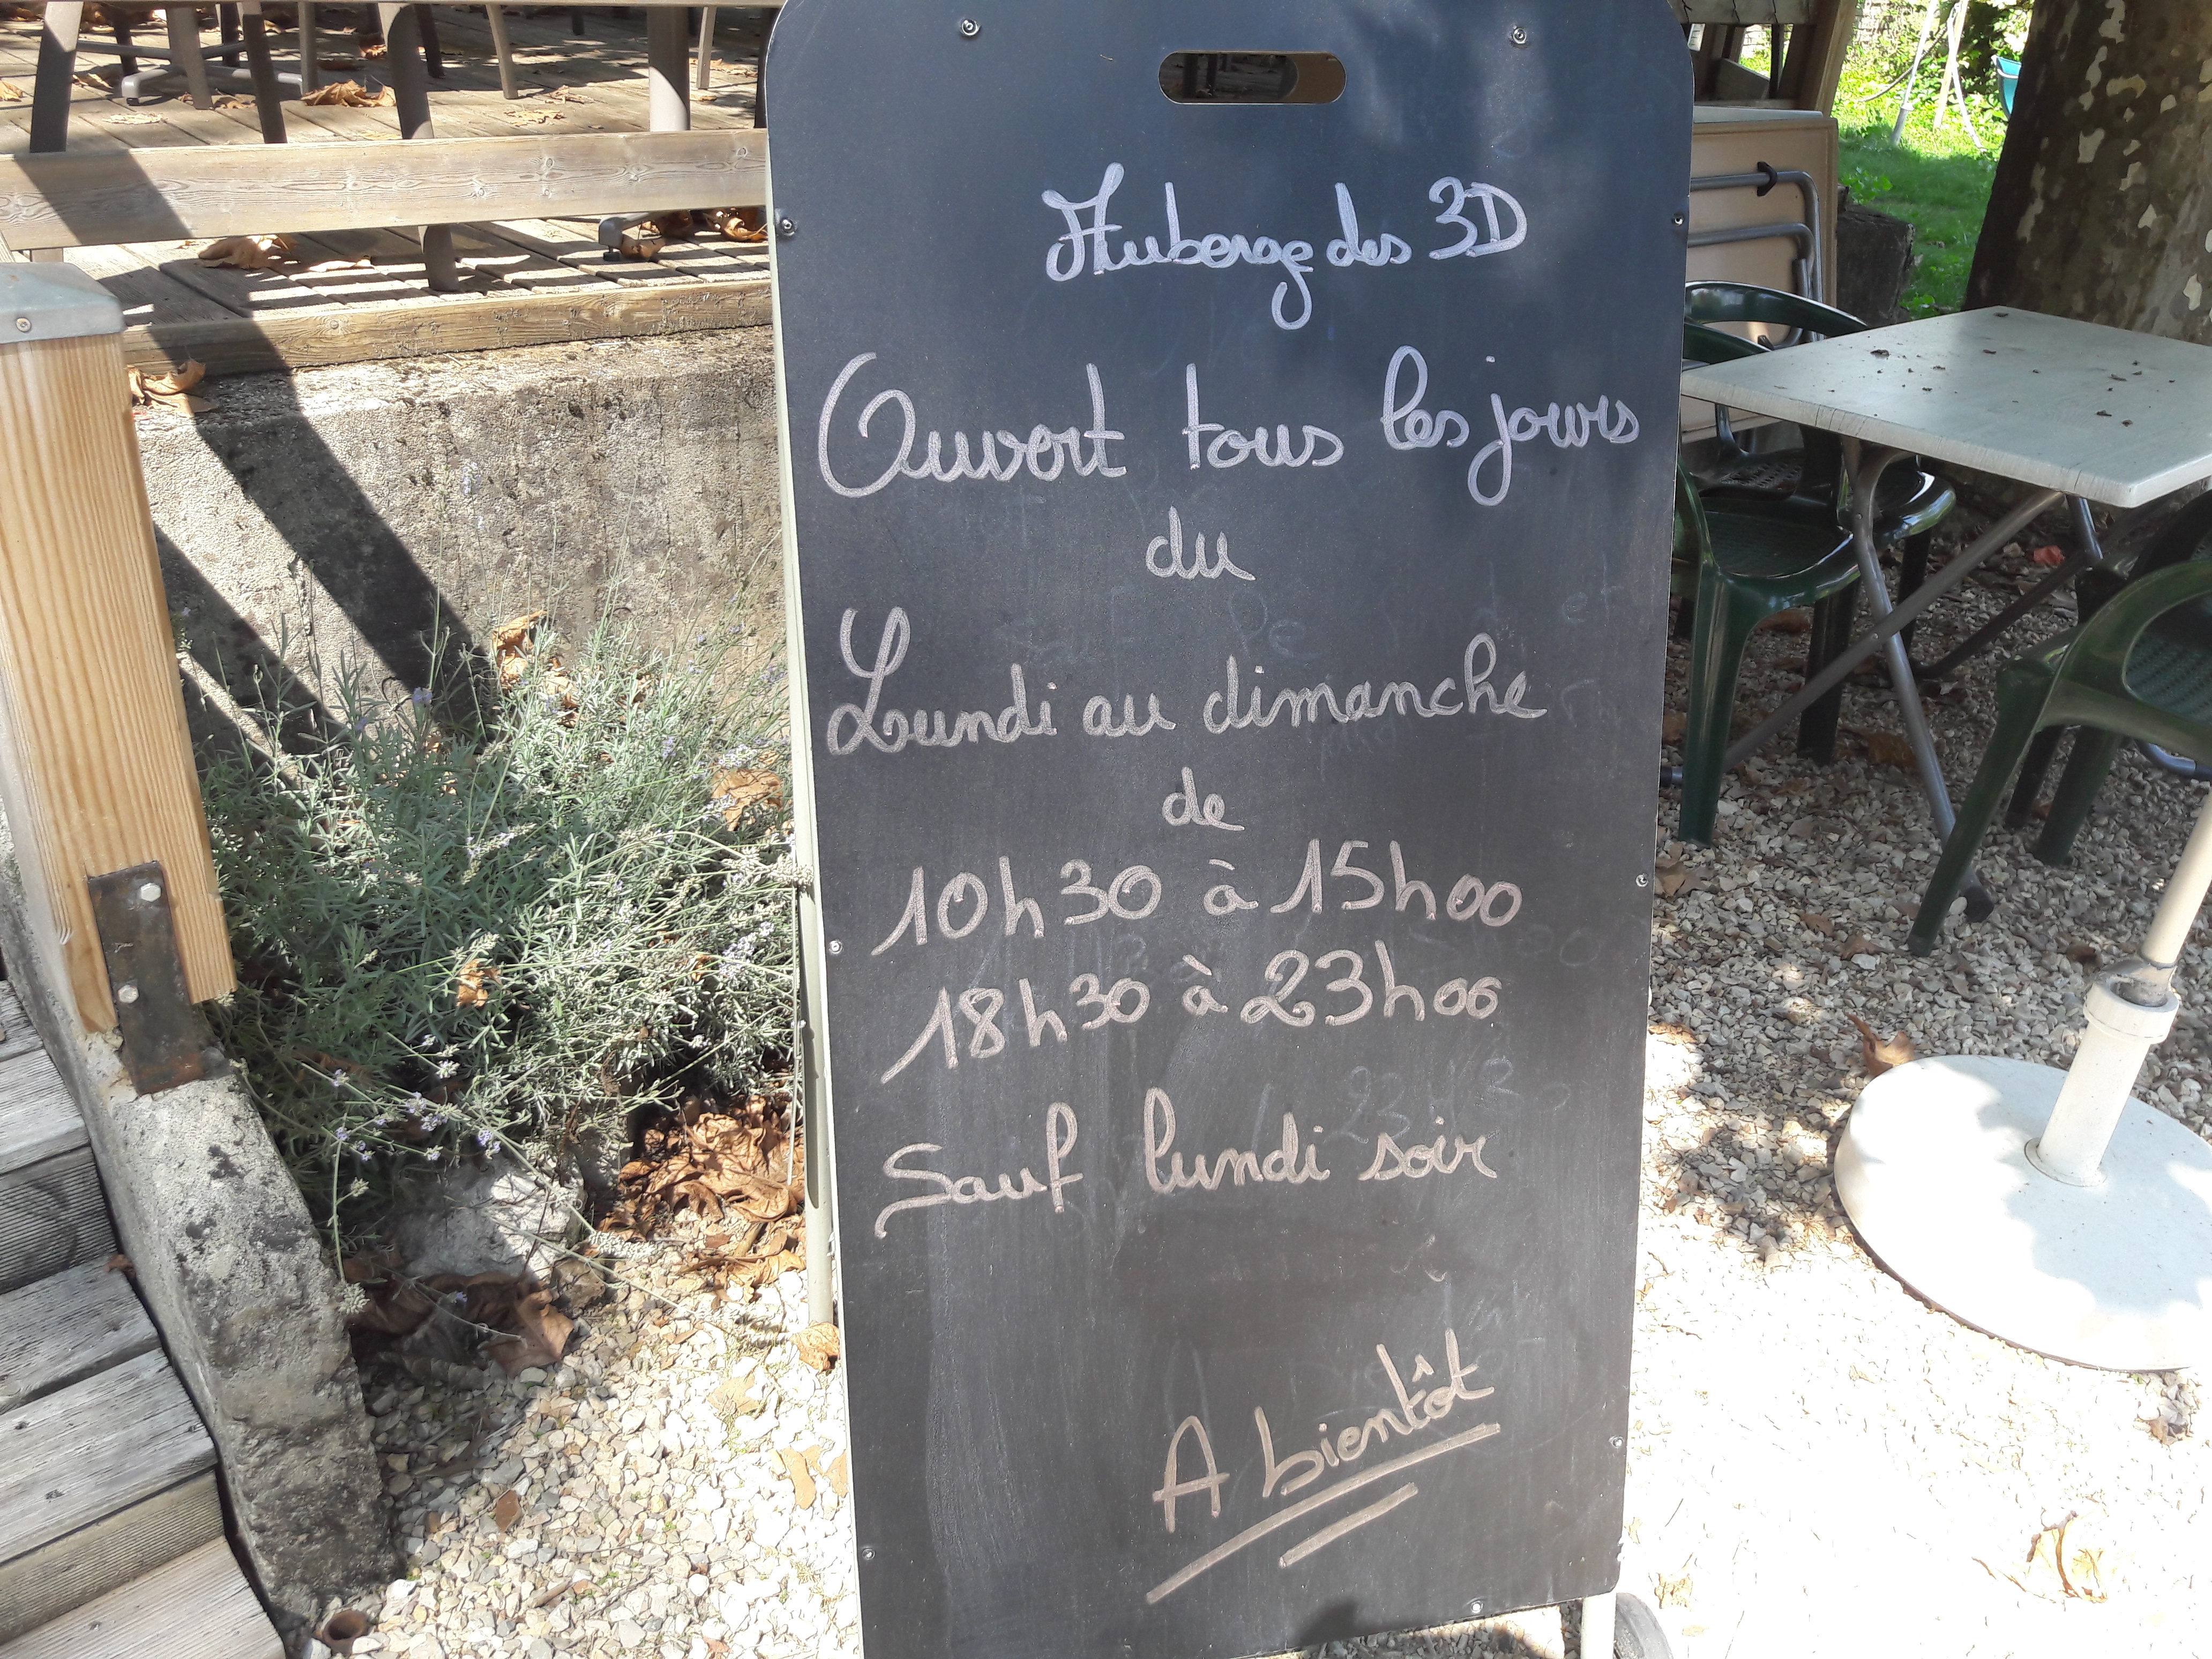 Auberge des 3D
Ouvert tous les jours
du
Lundi au dimanche
de
10h30 à 15h00
18h30 à 23h00
Sauf lundi soir
A bientôt